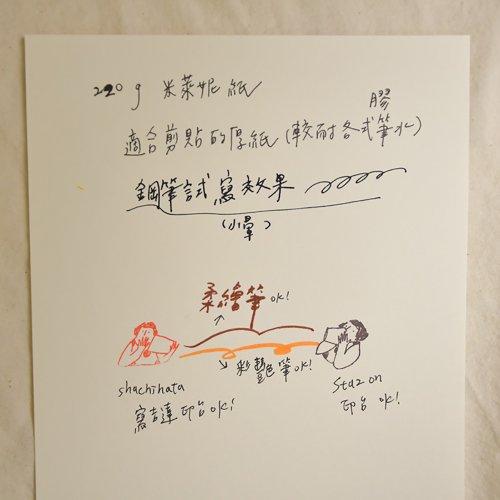 220g 米萊妮紙
膠
適合剪貼的厚紙(較耐各式筆水)
鋼筆試寫效果
(小暈)
柔繪筆 OK!
彩艷色筆 OK!
shachihata
寫吉達印台OK!
Stazon
印台 OK!